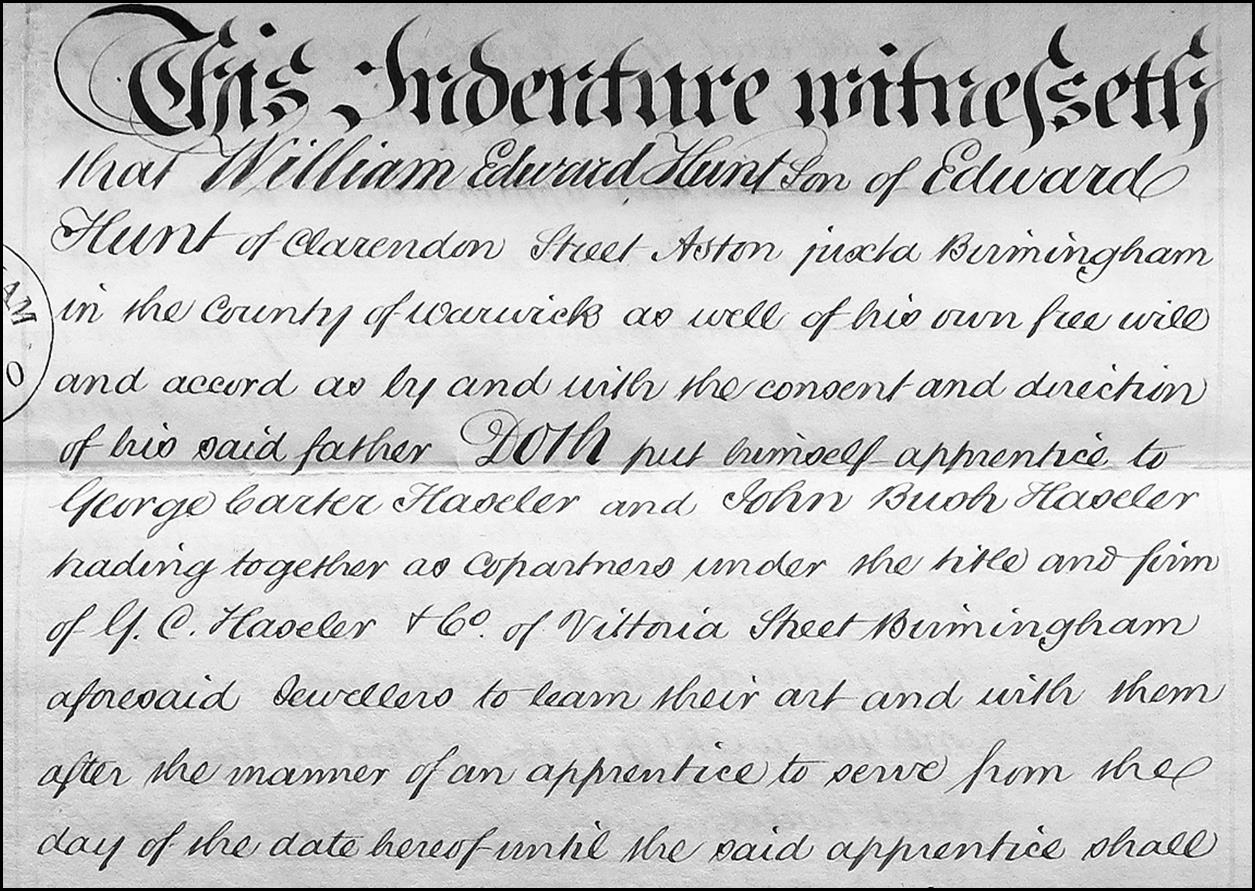 This Indenture witnesseth
that William Edward Hunt Son of Edward
Hunt of Clarendon Street Aston juxta Birmingham
in the County of Warwick as well of his own free will
and accord as by and with the consent and direction
of his said father Doth put himself apprentice to
George Carter Haseler and John Bush Haseler
trading together as Copartners under the title and firm
of G. C. Haseler & Co. of Vittoria Street Birmingham
aforesaid Jewellers to learn their art and with them
after the manner of an apprentice to serve from the
day of the date hereof until the said apprentice shall
AM
O